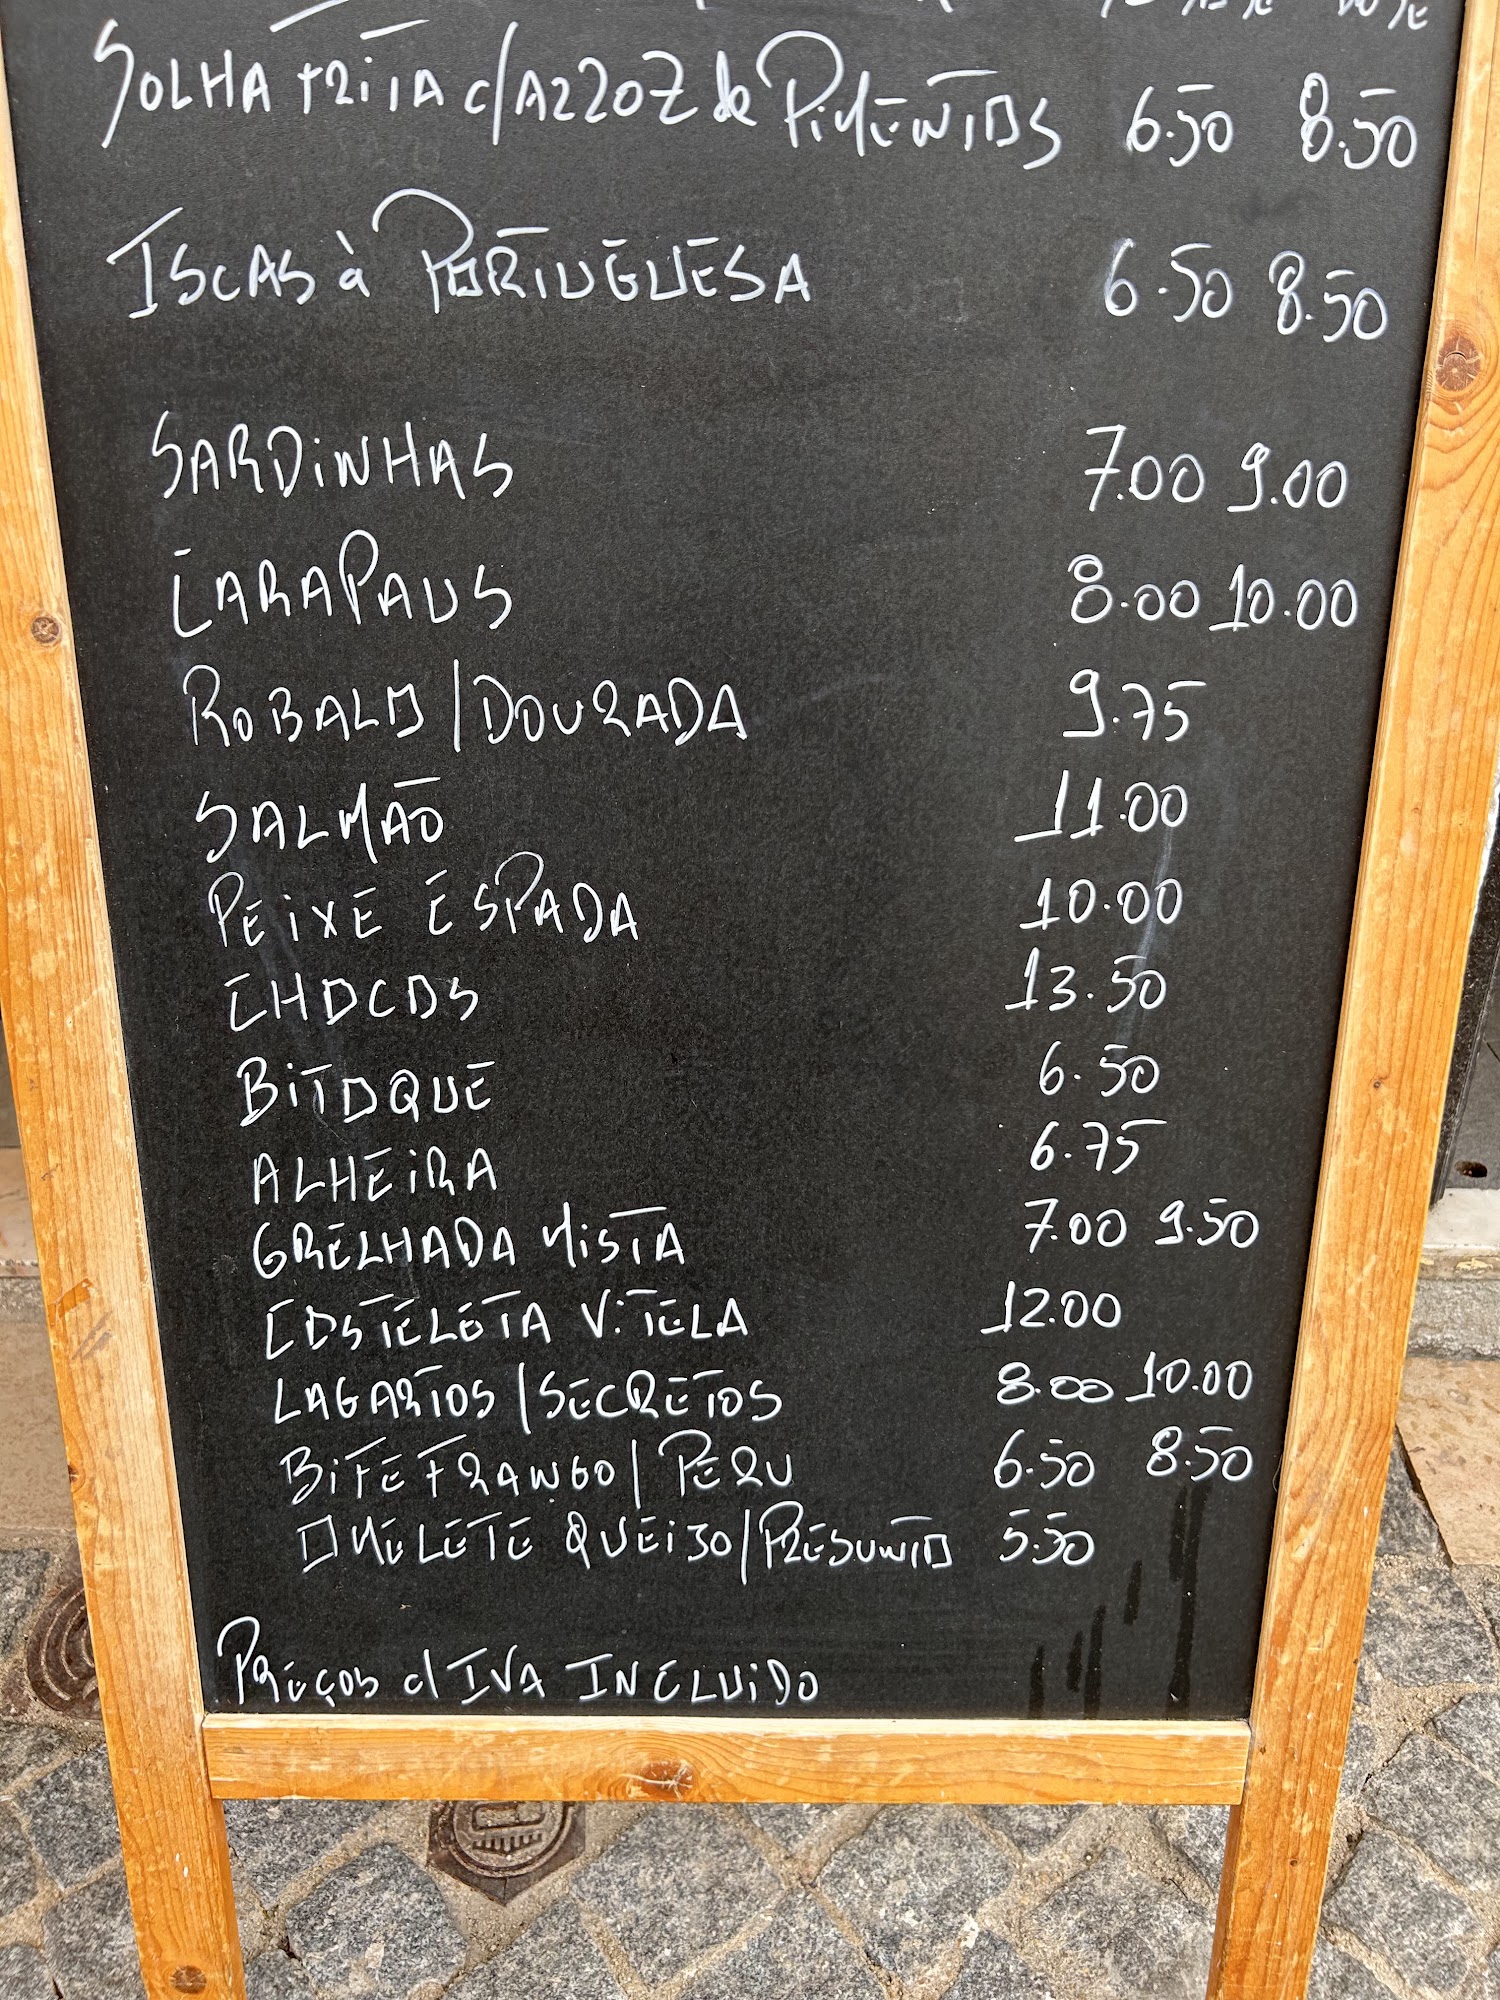 SOLHA FRITA c/ARROZ de PIMENTOS 6.50 8.50
ISCAS à PORTUGUESA 6.50 8.50
SARDINHAS 7.00 9.00
CARAPAUS 8.00 10.00
ROBALO/DOURADA 9.75
SALMÃO 11.00
PEIXE ESPADA 10.00
CHOCOS 13.50
BITOQUE 6.50
ALHEIRA 6.75
GRELHADA MISTA 7.00 9.50
COSTELETA VITELA 12.00
LAGARTOS/SECRETOS 8.00 10.00
BIFE FRANGO/PERU 6.50 8.50
OMELETE QUEIJO/PRESUNTO 5.50
PREÇOS c/IVA INCLUIDO